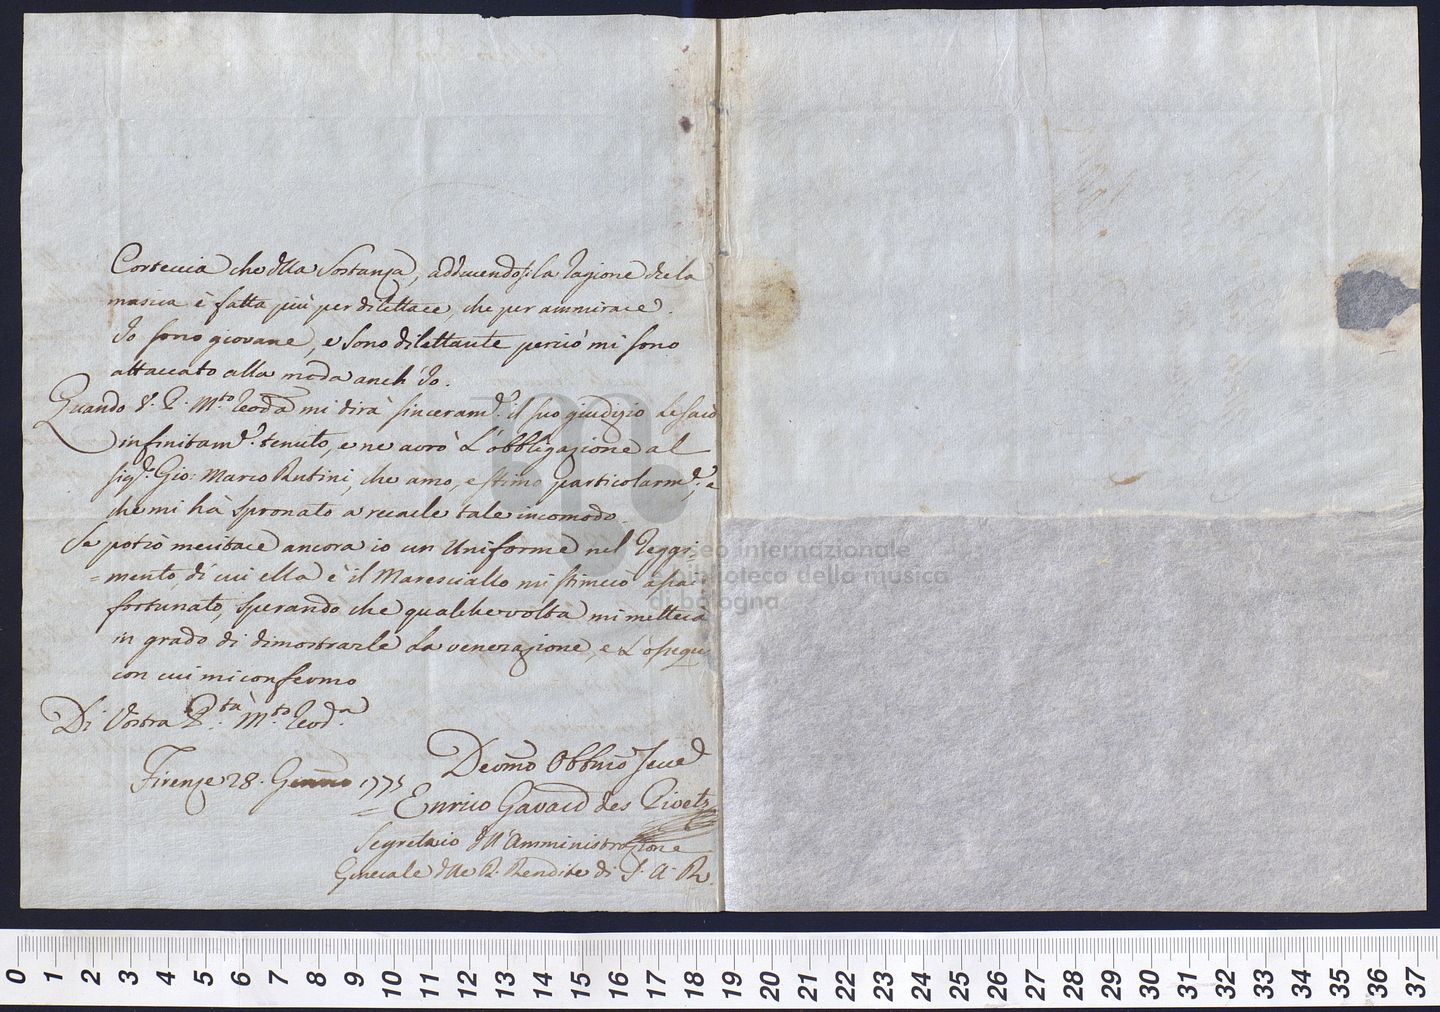 Corteccia che d̃lla Sostanza, adducendosi la ragione che la
musica è fatta più per dilettare, che per ammirare.
Io sono giovane, e sono dilettante perciò mi sono
attaccato alla moda anch'Io.
Quando V. P. M.to Revda mi dirà sinceram.e il suo giudizio Le sarò
infinitam.e tenuto, e ne avrò L'obbligazione al
Sig.r Gio: Marco Rutini, che amo, e stimo particolarm.e, e
che mi hà spronato a recarle tale incomodo.
Se potrò meritare ancora io un Uniforme nel Reggi,
=mento, di cui ella è il Maresciallo mi stimerò assai
fortunato, sperando che qualche volta mi metterà
in grado di dimostrarle La venerazione, e L'ossequio
con cui mi confermo
Di Vostra P.tà M.to Revd.a
Firenze 28. Genn̅o 1775
Devmo Obbmo Serv.e
Enrico Gavard des Pivets
Segretario d̃ll'Amministrazione
Generale d̃lle R. Rendite di S. A. R.
museo internazionale
e biblioteca della musica
di bologna
0 1 2 3 4 5 6 7 8 9 10 11 12 13 14 15 16 17 18 19 20 21 22 23 24 25 26 27 28 29 30 31 32 33 34 35 36 37